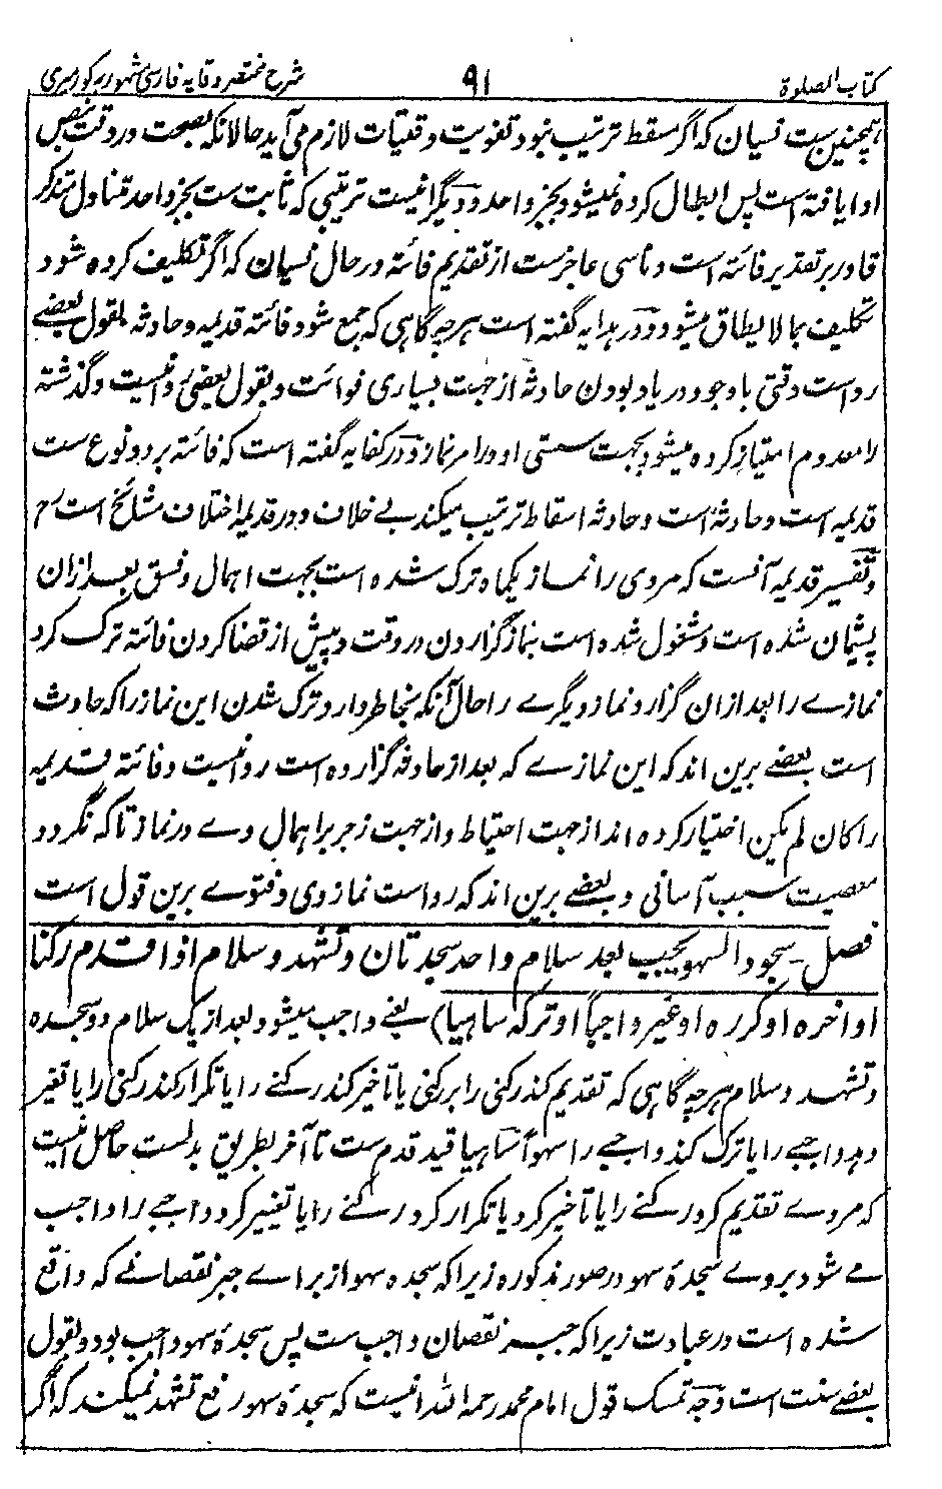 کتاب الصلوة ۹۱ شرح مختصر وقایه فارسی مشهور به کورمیری
همچنین ست نسیان که اگر مسقط ترتیب نبود تفویت وقتیات لازم می آید حالانکه بصحت در وقت بنص
ادا یافته است پس ابطال کرده نمیشود بخبر واحد و دیگر آنست ترتیبی که ثابت ست بخبر واحد تناول تذکر
قادر بر تقدیر فائته است و ناسی عاجز ست از تقدیم فائته در حال نسیان که اگر تکلیف کرده شود
تکلیف بما لا یطاق میشود و در هدایه گفته است هر چه گاهی که جمع شود فائته قدیمه و حادثه بقول بعضے
رواست وقتی با وجود در یاد بودن حادثه از جهت بسیاری فوائت و بقول بعضی روا نیست و گذشته
را معدوم اعتبار کرده میشود بجهت سستی او در امر نماز و در کفایه گفته است که فائته بر دو نوع ست
قدیمه است و حادثه است و حادثه اسقاط ترتیب میکند بے خلاف و در قدیمه اختلاف مشائخ است رح
و تفسیر قدیمه آنست که مروی را نماز یکماه ترک شده است بجهت اهمال و فسق بعد ازان
پشیمان شده است و مشغول شده است بنماز گزاردن در وقت و پیش از قضا کردن فائته ترک کرد
نمازے را بعد ازان گزارد نماز دیگرے را حال آنکه بخاطر دارد ترک شدن این نماز را که حادث
است بعضے برین اند که این نمازے که بعد از حادثه گزارده است روا نیست و فائته قدیمه
را کان لم یکن اختیار کرده اند از جهت احتیاط و از جهت زجر بر اهمال وے در نماز تا که نگردد
معصیت سبب آسانی و بعضے برین اند که رواست نماز وی و فتوے برین قول است
فصل سجود السهو یجب بعد سلام واحد سجدتان و تشهد و سلام اذا قدم رکنا
او اخره او کرره او غیر واجبا او ترکه ساهیا) یعنے واجب میشود بعد از یک سلام دو سجده
و تشهد و سلام هر چه گاهی که تقدیم کند رکنی را بر رکنی یا تاخیر کند رکنے را یا تکرار کند رکنی را یا تغیر
دهد واجبے را یا ترک کند واجبے را سهواً ساهیا قید قدم ست تا آخر بطریق بدلست حاصل آنست
که مروے تقدیم کرد رکنے را یا تاخیر کرد یا تکرار کرد رکنے را یا تغییر کرد واجبے را واجب
مے شود بروے سجدۀ سهو در صور مذکوره زیرا که سجده سهو از براے جبر نقصانئے که واقع
شده است در عبادت زیرا که جبر نقصان واجب ست پس سجدۀ سهو واجب بود و بقول
بعضے سنت است وجه تمسک قول امام محمد رحمه الله آنست که سجدۀ سهو رفع تشهد نمیکند که اگر